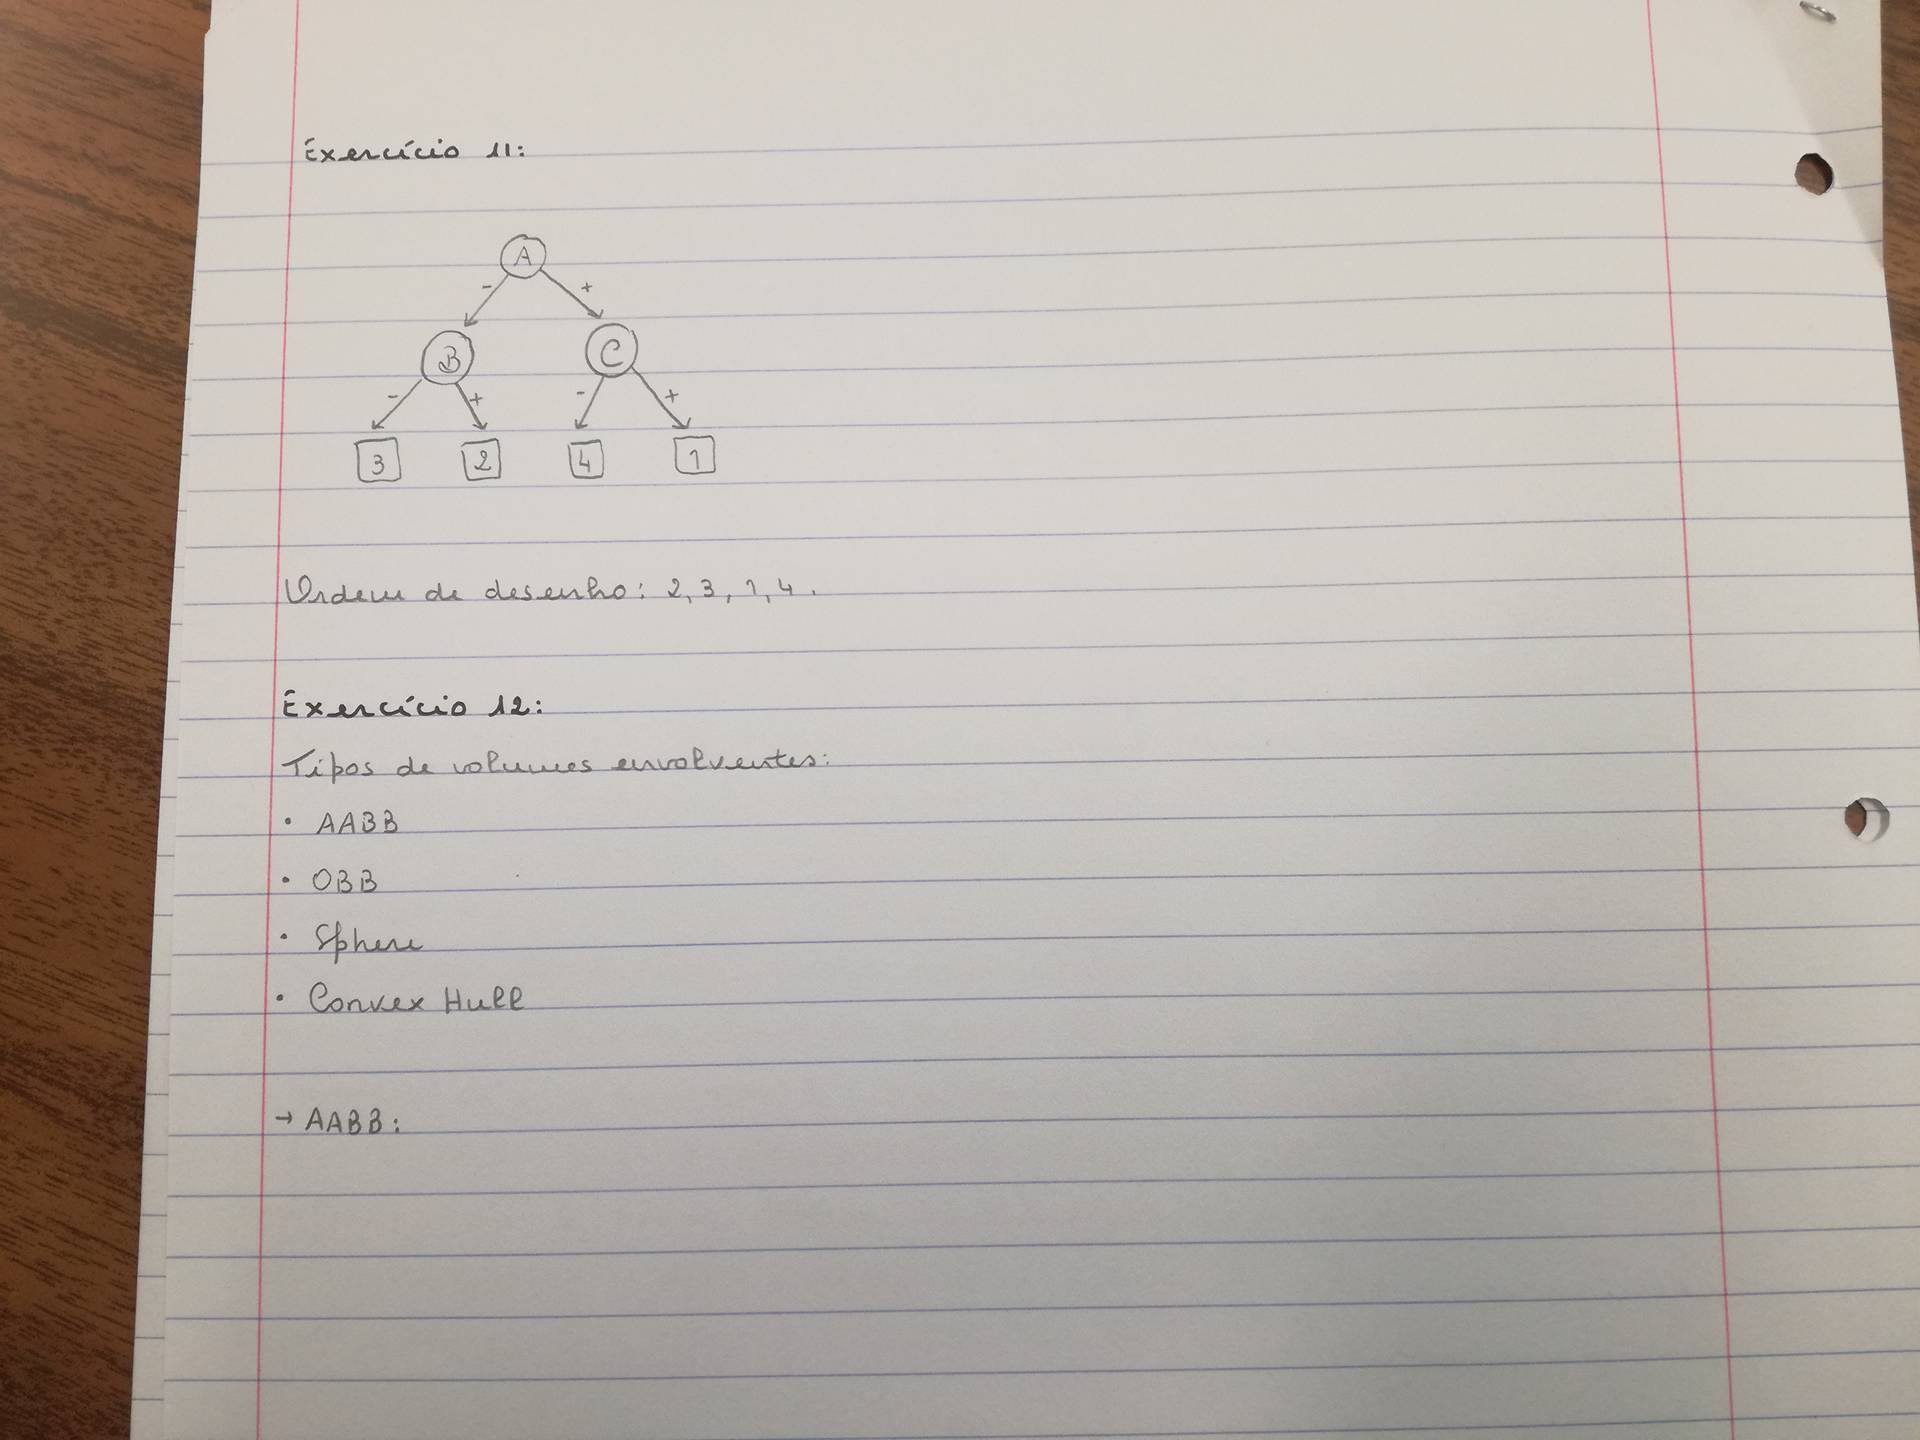 Exercício 11:
A
- +
B C
- + - +
3 2 4 1
Ordem de desenho: 2, 3, 1, 4.
Exercício 12:
Tipos de volumes envolventes:
• AABB
• OBB
• Sphere
• Convex Hull
→ AABB: